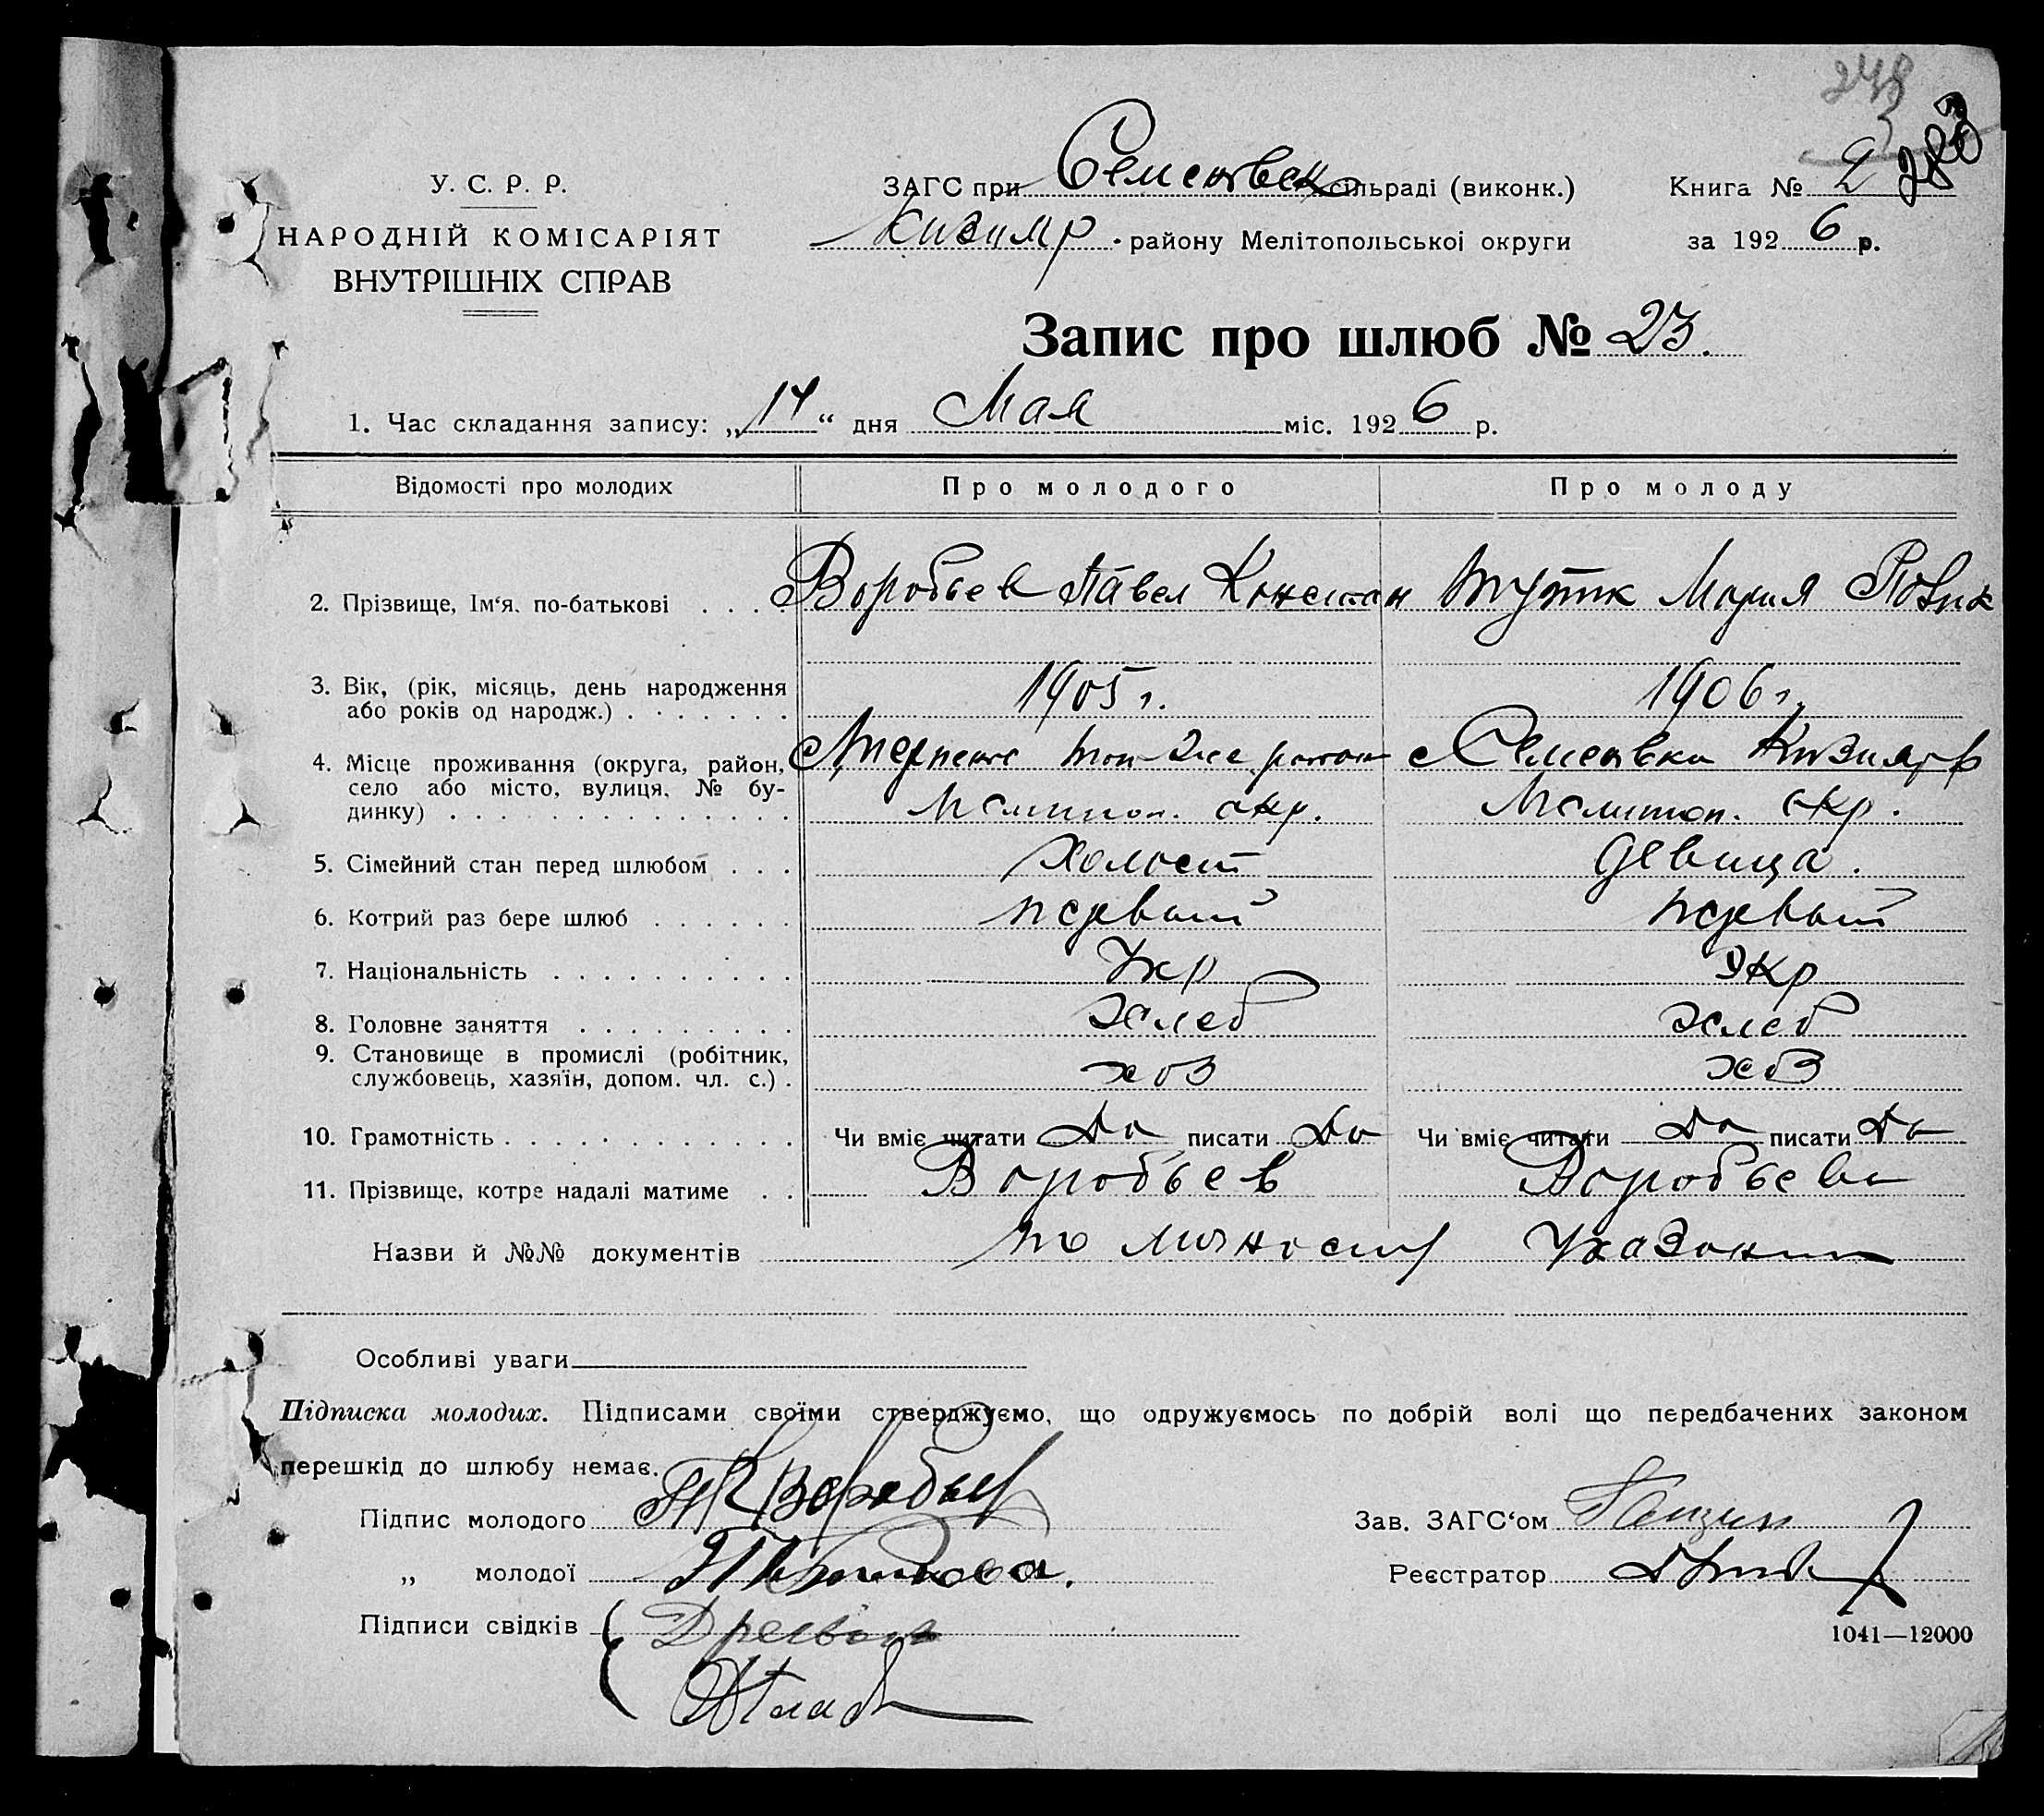 248
У. С. Р. Р.
НАРОДНІЙ КОМІСАРІЯТ
ВНУТРІШНІХ СПРАВ
ЗАГС при Семеновск сільраді (виконк.)
Книга № 2
280
Кизияр району Мелітопольської округи
за 1926 р.
Запис про шлюб № 23.
1. Час складання запису: „14“ дня Мая міс. 1926 р.
Відомості про молодих
Про молодого
Про молоду
2. Прізвище, Ім‘я, по-батькові . . . Воробьев Павел Констан Мария
3. Вік, (рік, місяць, день народження
або років од народж.) . . . . . . . 1905 г. 1906 г.
4. Місце проживання (округа, район, с Терпение того же район с Семеновка Кизияр р
село або місто, вулиця, № бу- Мелитоп. окр. Мелитоп. окр.
динку) . . . . . . . . . . . . . .
5. Сімейний стан перед шлюбом . . . Холост девица.
6. Котрий раз бере шлюб . . . . . . первый первый
7. Національність . . . . . . . . . . Укр Укр
8. Головне заняття . . . . . . . . . Хлеб Хлеб
9. Становище в промислі (робітник,
службовець, хазяїн, допом. чл. с.) . хоз хоз
10. Грамотність . . . . . . . . . . . . Чи вміє читати Да писати Да Чи вміє читати Да писати Да
11. Прізвище, котре надалі матиме . . Воробьев Воробьева
Назви й №№ документів по личности
Особливі уваги
Підписка молодих. Підписами своїми стверджуємо, що одружуємось по добрій волі що передбачених законом
перешкід до шлюбу немає.
Підпис молодого П К Воробьев
Зав. ЗАГС‘ом
„ молодої
Реєстратор
Підписи свідків
1041—12000